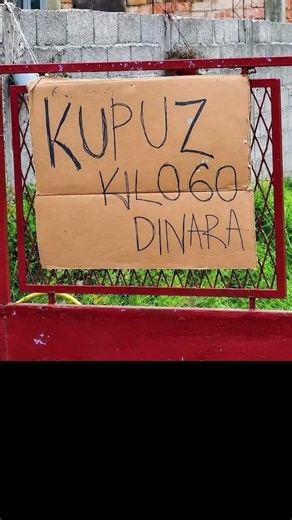 KUPUZ
KILO60
DINARA